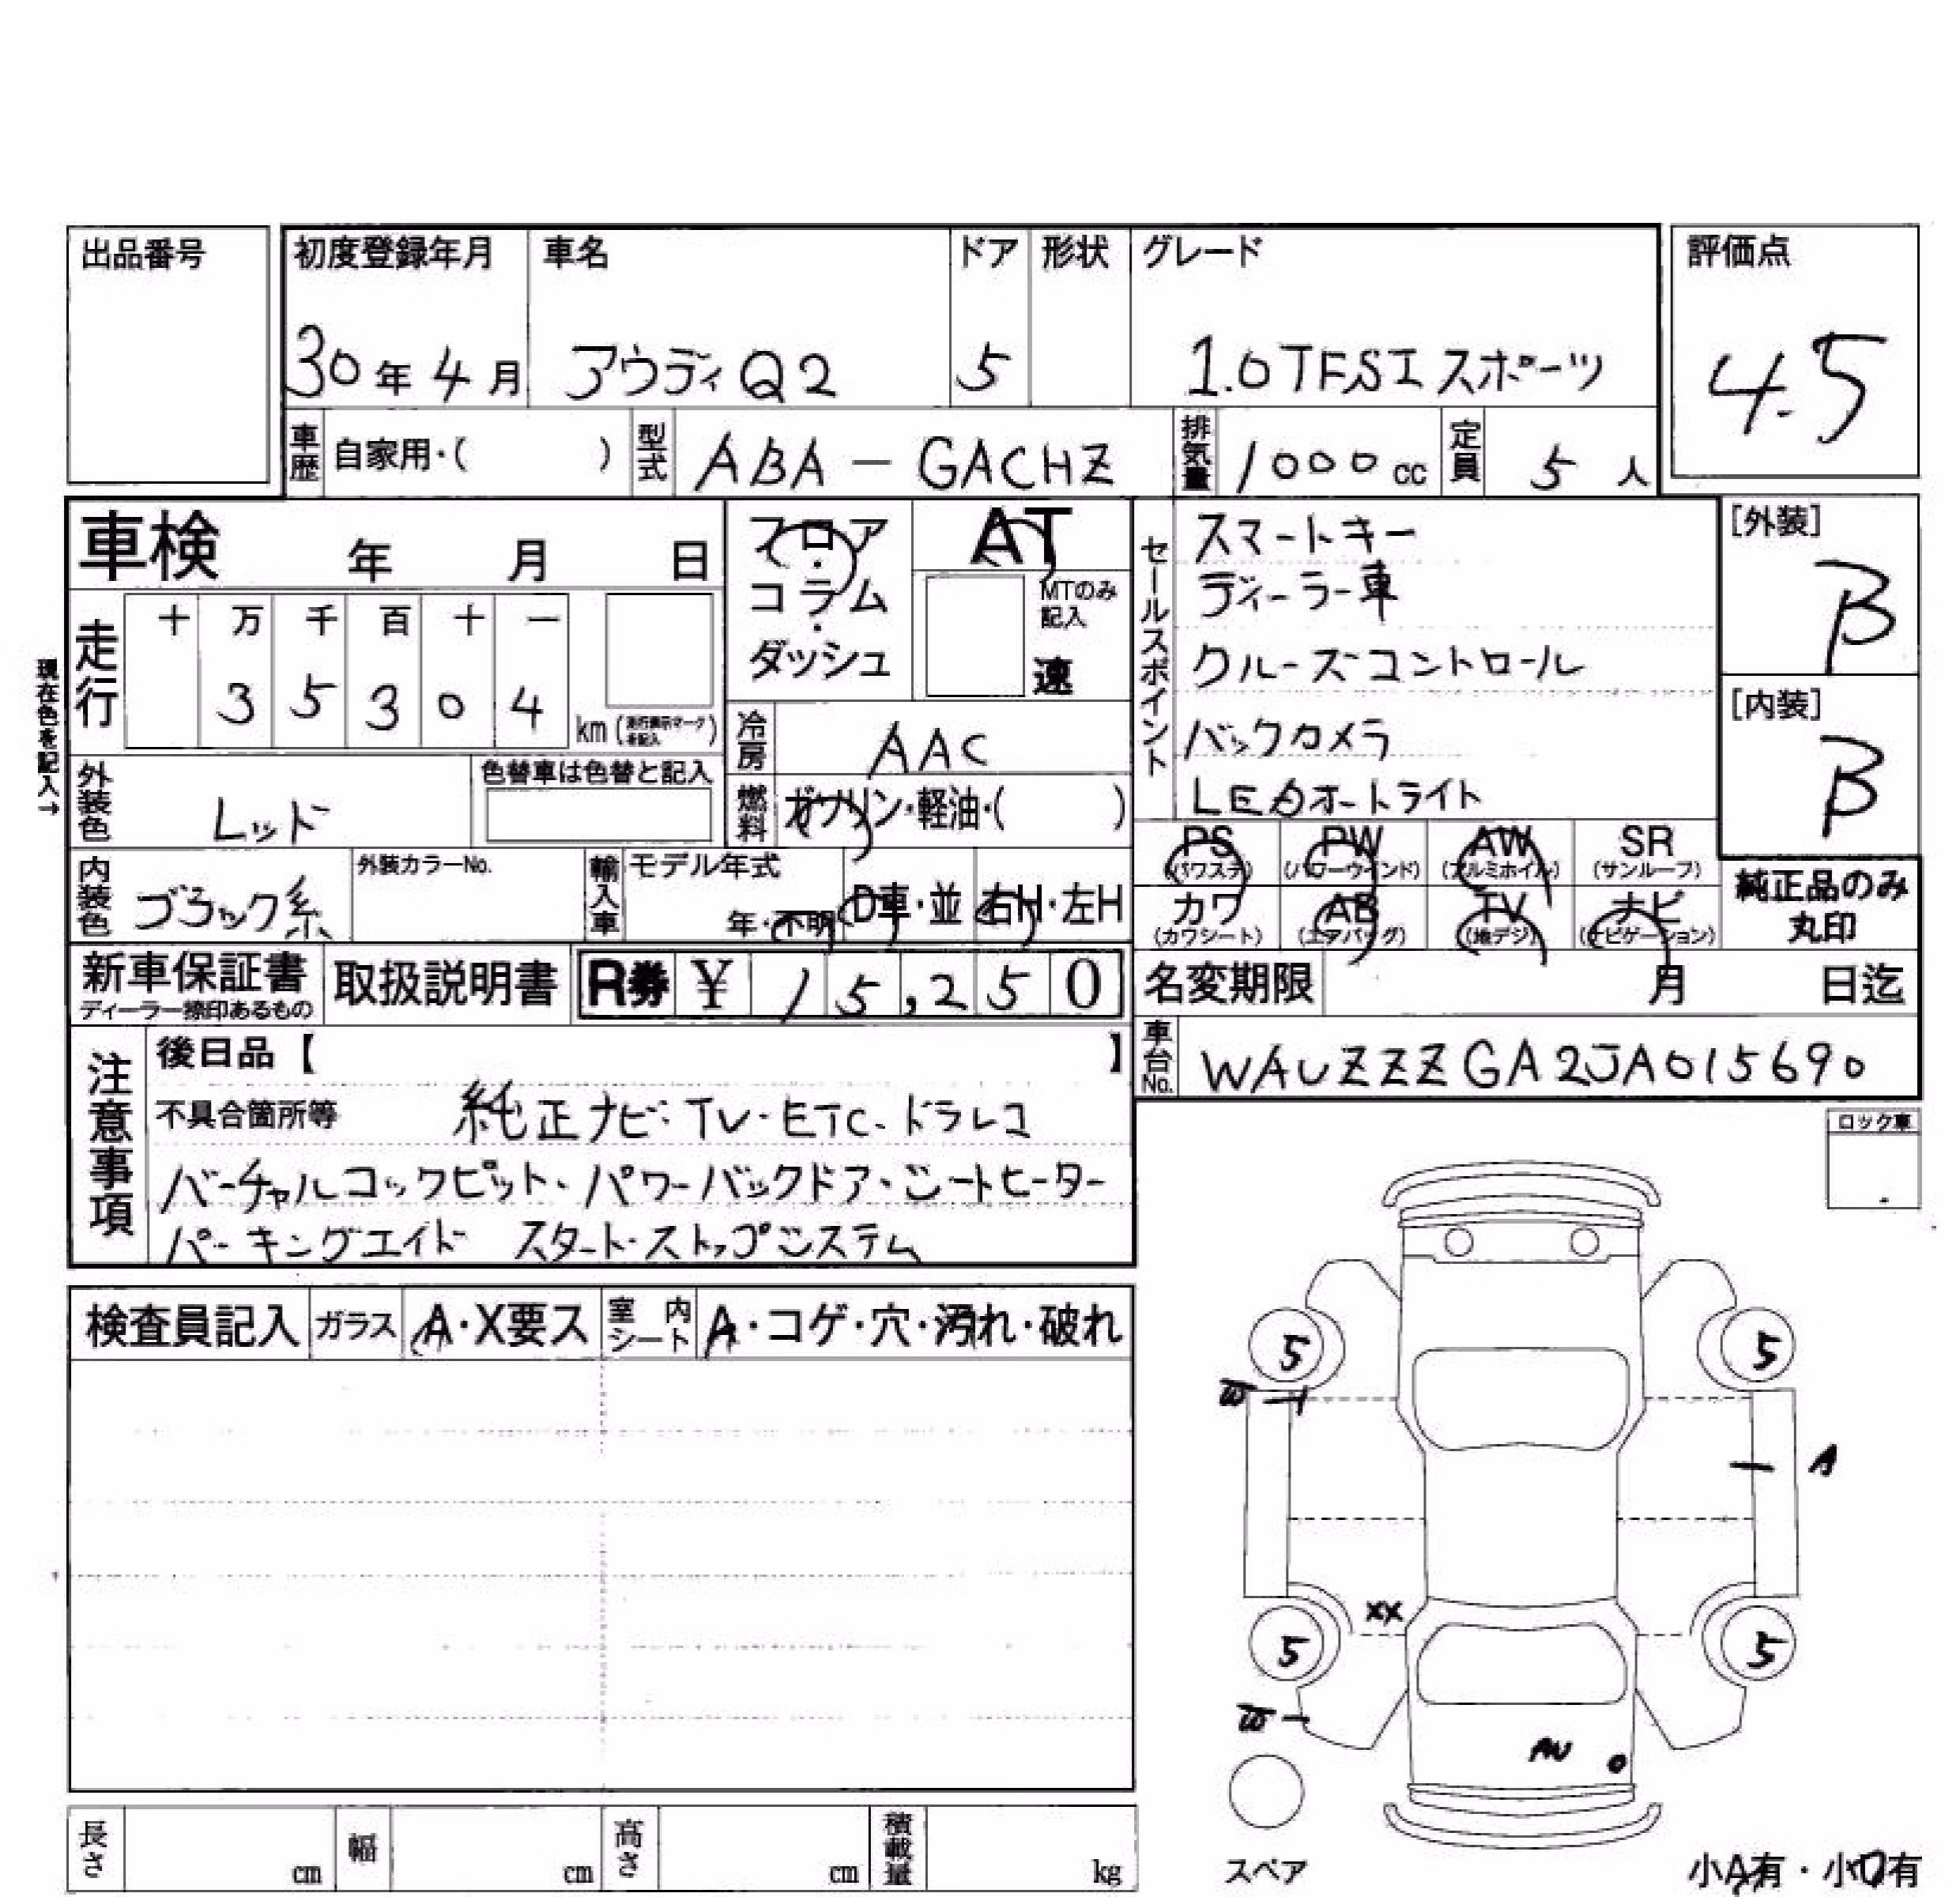 出品番号
初度登録年月 車名 ドア 形状 グレード 評価点
30年4月 アウディQ2 5 1.0TFSIスポーツ 4.5
車歴 自家用・( ) 型式 ABA-GACHZ 排気量 1000cc 定員 5人
車検 年 月 日
フロア・コラム・ダッシュ
AT
MTのみ記入
速
セールスポイント
スマートキー
ディーラー車
クルーズコントロール
バックカメラ
LEDオートライト
[外装]
B
[内装]
B
現在色を記入→
走行 十 万 千 百 十 一
3 5 3 0 4 km
冷房 AAC
外装色 レッド 色替車は色替と記入
燃料 ガソリン・軽油・( )
PS (パワステ) PW (パワーウインド) AW (アルミホイル) SR (サンルーフ)
内装色 ブラック系 外装カラーNo. 輸入車 モデル年式 年・不明 D車・並 右H・左H
カワ (カワシート) AB (エアバッグ) TV (地デジ) ナビ (ナビゲーション)
純正品のみ
丸印
新車保証書 取扱説明書 R券 ¥ 15,250 名変期限 月 日迄
ディーラー捺印あるもの
車台No. WAUZZZGA2JA015690
注意事項
後日品【 】
不具合箇所等 純正ナビ・TV・ETC・ドラレコ
バーチャルコックピット・パワーバックドア・シートヒーター
パーキングエイド スタート・ストップシステム
ロック車
検査員記入 ガラス A・X要ス 室内シート A・コゲ・穴・汚れ・破れ
5 5
W
A
XX
5 5
W
AU
スペア
小A有・小U有
長さ cm 幅 cm 高さ cm 積載量 kg